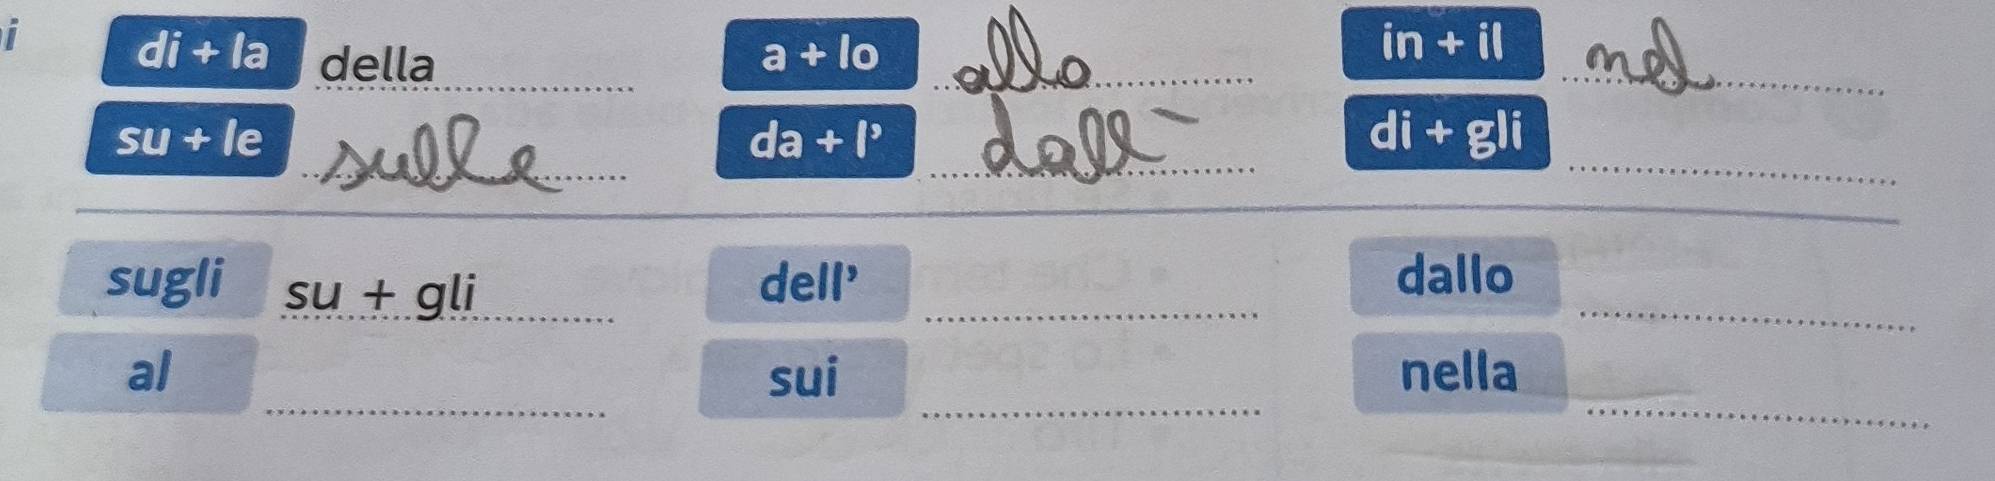 i di + la della a + lo allo in + il nel
su + le sulle da + l' dall' di + gli
sugli su + gli dell' dallo
al sui nella